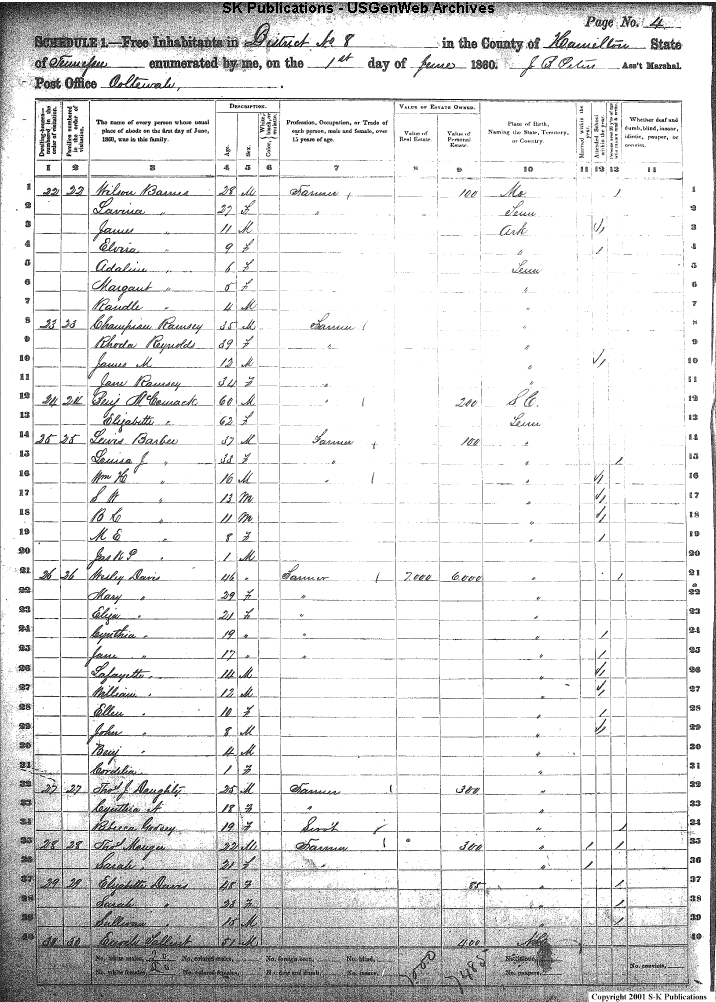 SK Publications - USGenWeb Archives
Page No. 4
SCHEDULE 1.—Free Inhabitants in District No 8 in the County of Hamilton State
of Tennessee enumerated by me, on the 1st day of June 1860. J B Peters Ass't Marshal.
Post Office Ooltewah,
DESCRIPTION. VALUE OF ESTATE OWNED.
Dwelling-houses—numbered in the order of visitation.
Families numbered in the order of visitation.
The name of every person whose usual place of abode on the first day of June, 1860, was in this family.
Age.
Sex.
Color,
Profession, Occupation, or Trade of each person, male and female, over 15 years of age.
Value of Real Estate.
Value of Personal Estate.
Place of Birth, Naming the State, Territory, or Country.
Married within the year.
Attended School within the year.
Whether deaf and dumb, blind, insane, idiotic, pauper, or convict.
1 2 3 4 5 6 7 8 9 10 11 12 13 14
1 22 22 Wilson Barnes 28 M Farmer / 100 Mo / 1
2 Lavina " 27 F " Tenn 2
3 James " 11 M Ark √1 3
4 Elvira " 9 F " 1 4
5 Adaline " 6 F Tenn 5
6 Margaret " 5 F " 6
7 Randle " 4 M " 7
8 23 23 Champian Ramsey 35 M Farmer / " 8
9 Rhoda Reynolds 39 F " " 9
10 James M 12 M " √1 10
11 Jane Ramsey 34 F " " 11
12 24 24 Benj McCormack 60 M " / 200 S C. 12
13 Elizabeth " 62 F Tenn 13
14 25 25 Lewis Barber 37 M Farmer / 100 " 14
15 Louisa J " 33 F " " / 15
16 Wm H " 16 M " / " √1 16
17 S W " 13 M " √1 17
18 B L " 11 M " √1 18
19 M E " 8 F " 1 19
20 Jas K P " 1 M " 20
21 26 26 Wesley Davis 46 " Farmer / 7,000 6,000 " / 21
22 Mary " 29 F " " 22
23 Eliza " 21 F " " 23
24 Cynthia " 19 " " " 1 24
25 Jane " 17 " " 1 25
26 Lafayette " 14 M " √1 26
27 William " 12 M " √1 27
28 Ellen " 10 F " 1 28
29 John " 8 M " √1 29
30 Benj " 4 M " 30
31 Cordelia " 1 F " 31
32 27 27 Thos J Daughty 25 M Farmer / 300 " 32
33 Cynthia A 18 F " " 33
34 Rebecca 19 F Servt " / 34
35 28 28 Thos 22 M Farmer / " 300 " / / 35
36 Sarah " 21 F " " / 36
37 29 29 Elizabeth Davis 48 F 85 " / 37
38 Sarah " 23 F " / 38
39 Sullivan " 15 M " / 39
40 30 30 51 M 400 40
No. white males, No. colored males, No. foreign born, No. blind,
No. white females, No. colored females, No. deaf and dumb, No. insane,
No. idiotic, No. paupers, No. convicts,
7000 7485
Copyright 2001 S-K Publications